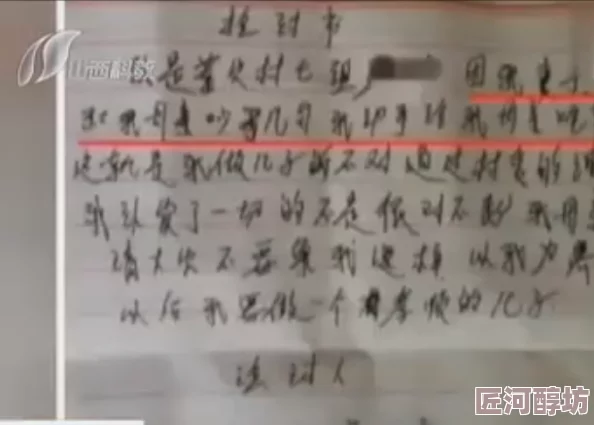 山西科教
检讨书
我是 村七组
因我妻子
和我母亲吵了几句我动手 我母亲
这就是我做儿子的不对通过村委的
我认 了一切的不是很对不起我母亲
请大家不要 我这样以我为
以后我要做一个有孝顺的儿子
检讨人
匠河醇坊